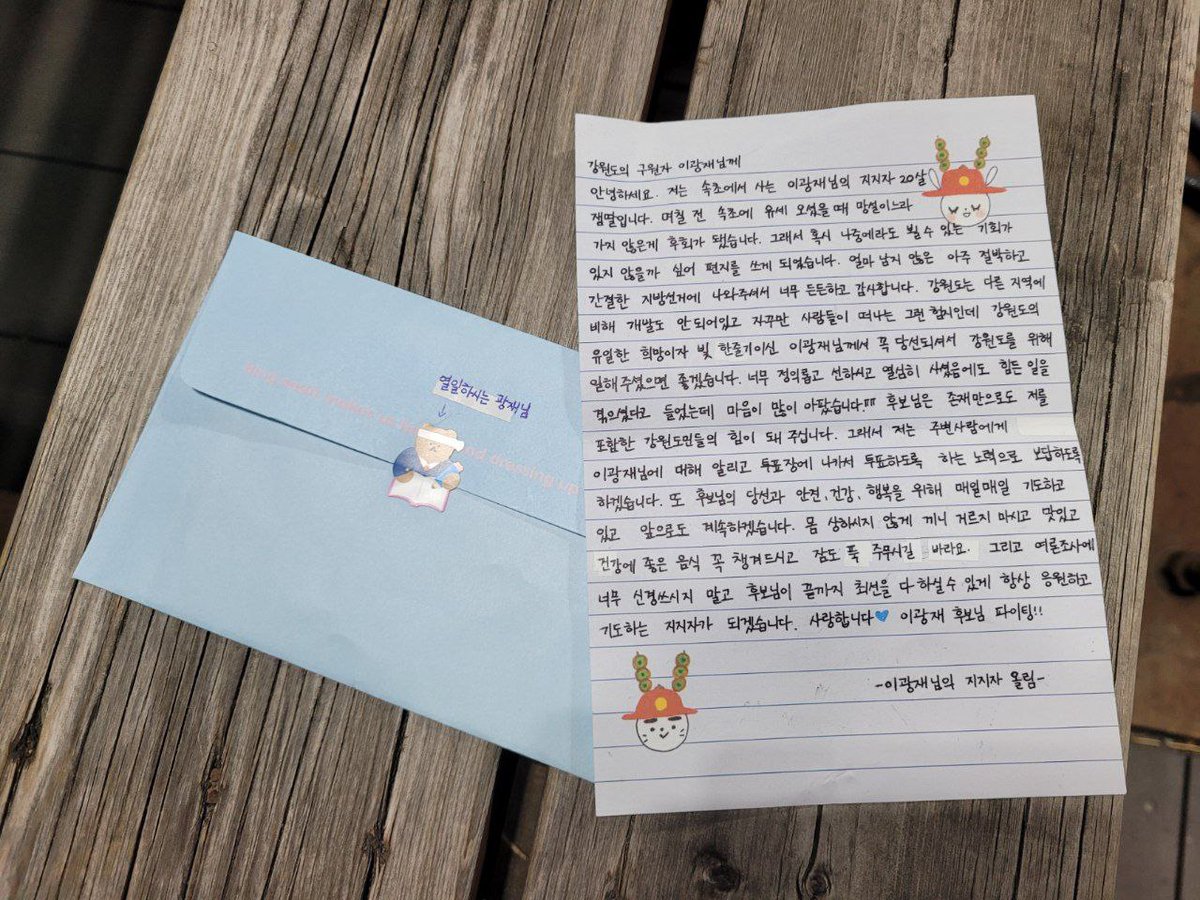 열일하시는 광재님
↓
강원도의 구원자 이광재님께
안녕하세요. 저는 속초에서 사는 이광재님의 지지자 20살
잼딸입니다. 며칠 전 속초에 유세 오셨을때 망설이느라
가지 않은게 후회가 됐습니다. 그래서 혹시 나중에라도 뵐 수 있는 기회가
있지 않을까 싶어 편지를 쓰게 되었습니다. 얼마 남지 않은 아주 절박하고
간절한 지방선거에 나와주셔서 너무 든든하고 감사합니다. 강원도는 다른 지역에
비해 개발도 안 되어있고 자꾸만 사람들이 떠나는 그런 힘시인데 강원도의
유일한 희망이자 빛 한줄기이신 이광재님께서 꼭 당선되셔서 강원도를 위해
일해 주셨으면 좋겠습니다. 너무 정의롭고 선하시고 열심히 사셨음에도 힘든 일을
겪으셨다고 들었는데 마음이 많이 아팠습니다.ㅠㅠ 후보님은 존재만으로도 저를
포함한 강원도민들의 힘이 돼 주십니다. 그래서 저는 주변사람에게
이광재님에 대해 알리고 투표장에 나가서 투표하도록 하는 노력으로 보답하도록
하겠습니다. 또 후보님의 당선과 안전, 건강, 행복을 위해 매일매일 기도하고
있고 앞으로도 계속하겠습니다. 몸 상하시지 않게 끼니 거르지 마시고 맛있고
건강에 좋은 음식 꼭 챙겨드시고 잠도 푹 주무시길 바라요. 그리고 여론조사에
너무 신경쓰시지 말고 후보님이 끝까지 최선을 다 하실 수 있게 항상 응원하고
기도하는 지지자가 되겠습니다. 사랑합니다💙 이광재 후보님 파이팅!!
-이광재님의 지지자 올림-